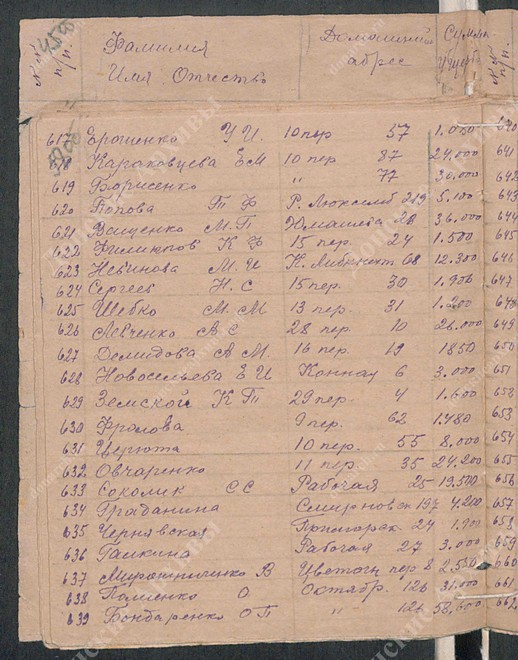 №№ п/п. Фамилия Имя Отчество Домашний адрес Сумма ущерба №№ п/п.
617 Ерошенко У И. 10 пер 57 1.000 640
Караковцева Е М 10 пер 87 24.000 641
619 Борисенко " 77 30.000 642
620 Попова Т Ф Р. Люксемб 219 5.100 643
621 Ващенко М. П Юмашева 28 36.000 644
622 Филиппов К Ф 15 пер. 24 1.500 645
623 М. И К. Либкнехт 68 12.300 646
624 Сергеев Н. С 15 пер. 30 1.900 647
625 Шебко М. М 13 пер. 31 1.200 648
626 Левченко А С 28 пер. 10 26.000 649
627 Демидова А М. 16 пер. 19 1850 650
628 Новосельева Е И Конная 6 3.000 651
629 Земской К П 29 пер. 4 1.600 652
630 Фролова 9 пер. 62 1.480 653
631 Цирюта 10 пер. 55 8.000 654
632 Овчаренко 11 пер. 35 24.200 655
633 Соколик С С Рабочая 25 19.500 656
634 Гражданина Смирновск 197 4.200 657
635 Чернявская Пригорск. 24 658
636 Галкина Рабочая 27 3.000 659
637 Мирошниченко В Цветочн пер 8 660
638 О. Октябр. 126 31.000 661
639 Бондаренко О П " 126 52.600 662